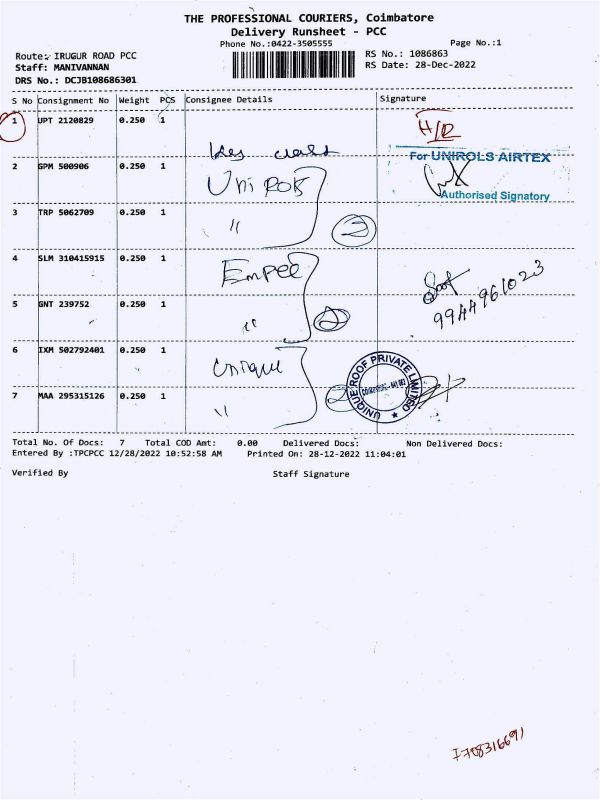 THE PROFESSIONAL COURIERS, Coimbatore
Delivery Runsheet - PCC
Phone No.:0422-3505555
Page No.:1
Route: IRUGUR ROAD PCC
RS No.: 1086863
Staff: MANIVANNAN
RS Date: 28-Dec-2022
DRS No.: DCJB108686301
S No Consignment No Weight PCS Consignee Details Signature
1 UPT 2120829 0.250 1 H/R
2 GPM 500906 0.250 1 Uni Rols For UNIROLS AIRTEX
Authorised Signatory
3 TRP 5062709 0.250 1 "
4 SLM 310415915 0.250 1 Empee
9944961023
5 GNT 239752 0.250 1 " 2
6 IXM 502792401 0.250 1 Unique
UNIQUE ROOF PRIVATE LIMITED
7 MAA 295315126 0.250 1 " 2
Total No. Of Docs: 7 Total COD Amt: 0.00 Delivered Docs: Non Delivered Docs:
Entered By :TPCPCC 12/28/2022 10:52:58 AM Printed On: 28-12-2022 11:04:01
Verified By Staff Signature